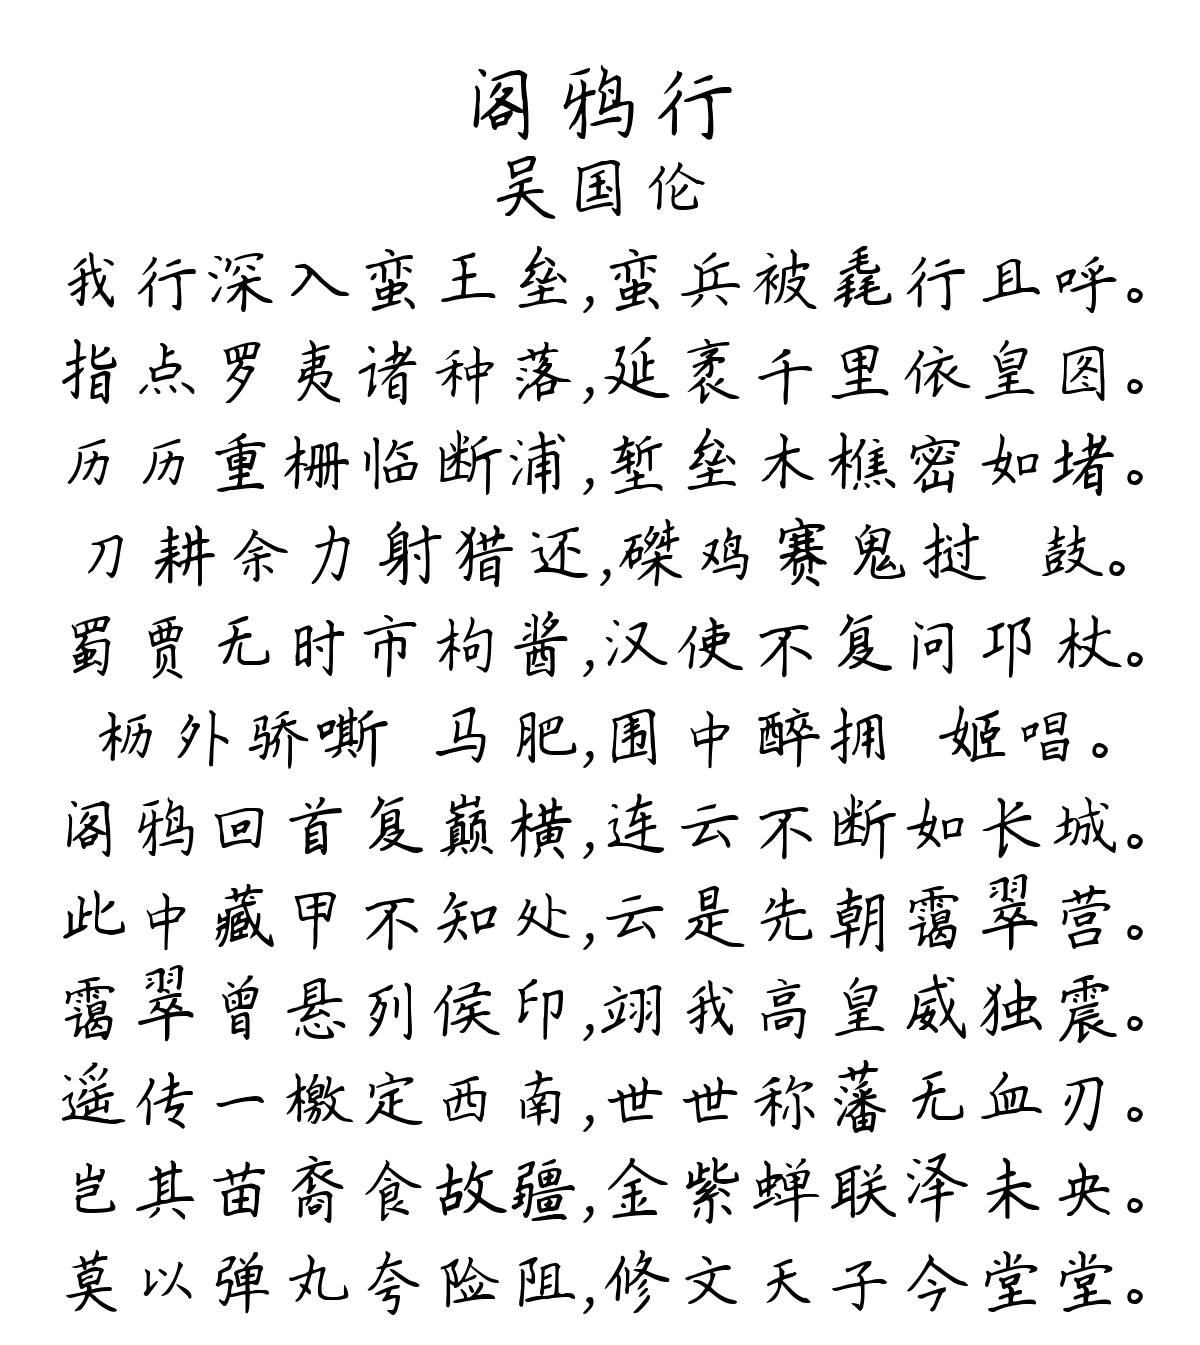 阁鸦行
吴国伦
我行深入蛮王垒,蛮兵被毳行且呼。
指点罗夷诸种落,延袤千里依皇图。
历历重栅临断浦,堑垒木樵密如堵。
刀耕余力射猎还,磔鸡赛鬼挝 鼓。
蜀贾无时市枸酱,汉使不复问邛杖。
枥外骄嘶 马肥,围中醉拥 姬唱。
阁鸦回首复巅横,连云不断如长城。
此中藏甲不知处,云是先朝霭翠营。
霭翠曾悬列侯印,翊我高皇威独震。
遥传一檄定西南,世世称藩无血刃。
岂其苗裔食故疆,金紫蝉联泽未央。
莫以弹丸夸险阻,修文天子今堂堂。